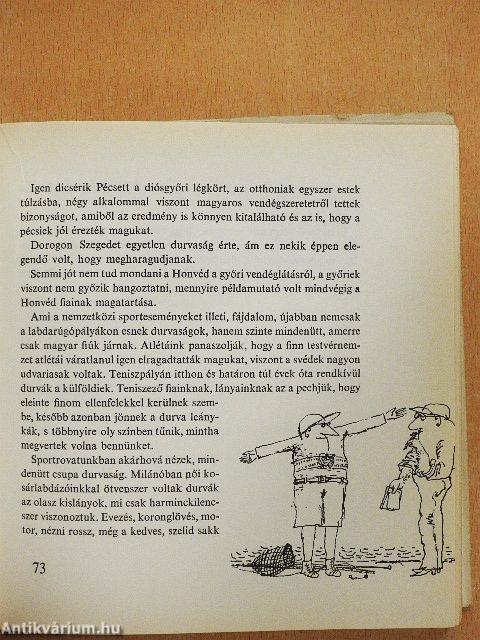 Igen dicsérik Pécsett a diósgyőri légkört, az otthoniak egyszer estek
túlzásba, négy alkalommal viszont magyaros vendégszeretetről tettek
bizonyságot, amiből az eredmény is könnyen kitalálható és az is, hogy a
pécsiek jól érezték magukat.
Dorogon Szegedet egyetlen durvaság érte, ám ez nekik éppen ele-
gendő volt, hogy megharagudjanak.
Semmi jót nem tud mondani a Honvéd a győri vendéglátásról, a győriek
viszont nem győzik hangoztatni, mennyire példamutató volt mindvégig a
Honvéd fiainak magatartása.
Ami a nemzetközi sporteseményeket illeti, fájdalom, újabban nemcsak
a labdarúgópályákon esnek durvaságok, hanem szinte mindenütt, amerre
csak magyar fiúk járnak. Atlétáink panaszolják, hogy a finn testvérnem-
zet atlétái váratlanul igen elragadtatták magukat, viszont a svédek nagyon
udvariasak voltak. Teniszpályán itthon és határon túl évek óta rendkívül
durvák a külföldiek. Teniszező fiainknak, lányainknak az a pechjük, hogy
eleinte finom ellenfelekkel kerülnek szem-
be, később azonban jönnek a durva leány-
kák, s többnyire oly színben tűnik, mintha
megvertek volna bennünket.
Sportrovatunkban akárhová nézek, min-
denütt csupa durvaság. Milánóban női ko-
sárlabdázóinkkal ötvenszer voltak durvák
az olasz kislányok, mi csak harminckilenc-
szer viszonoztuk. Evezés, koronglövés, mo-
tor, nézni rossz, még a kedves, szelid sakk
73
Antikvárium.hu